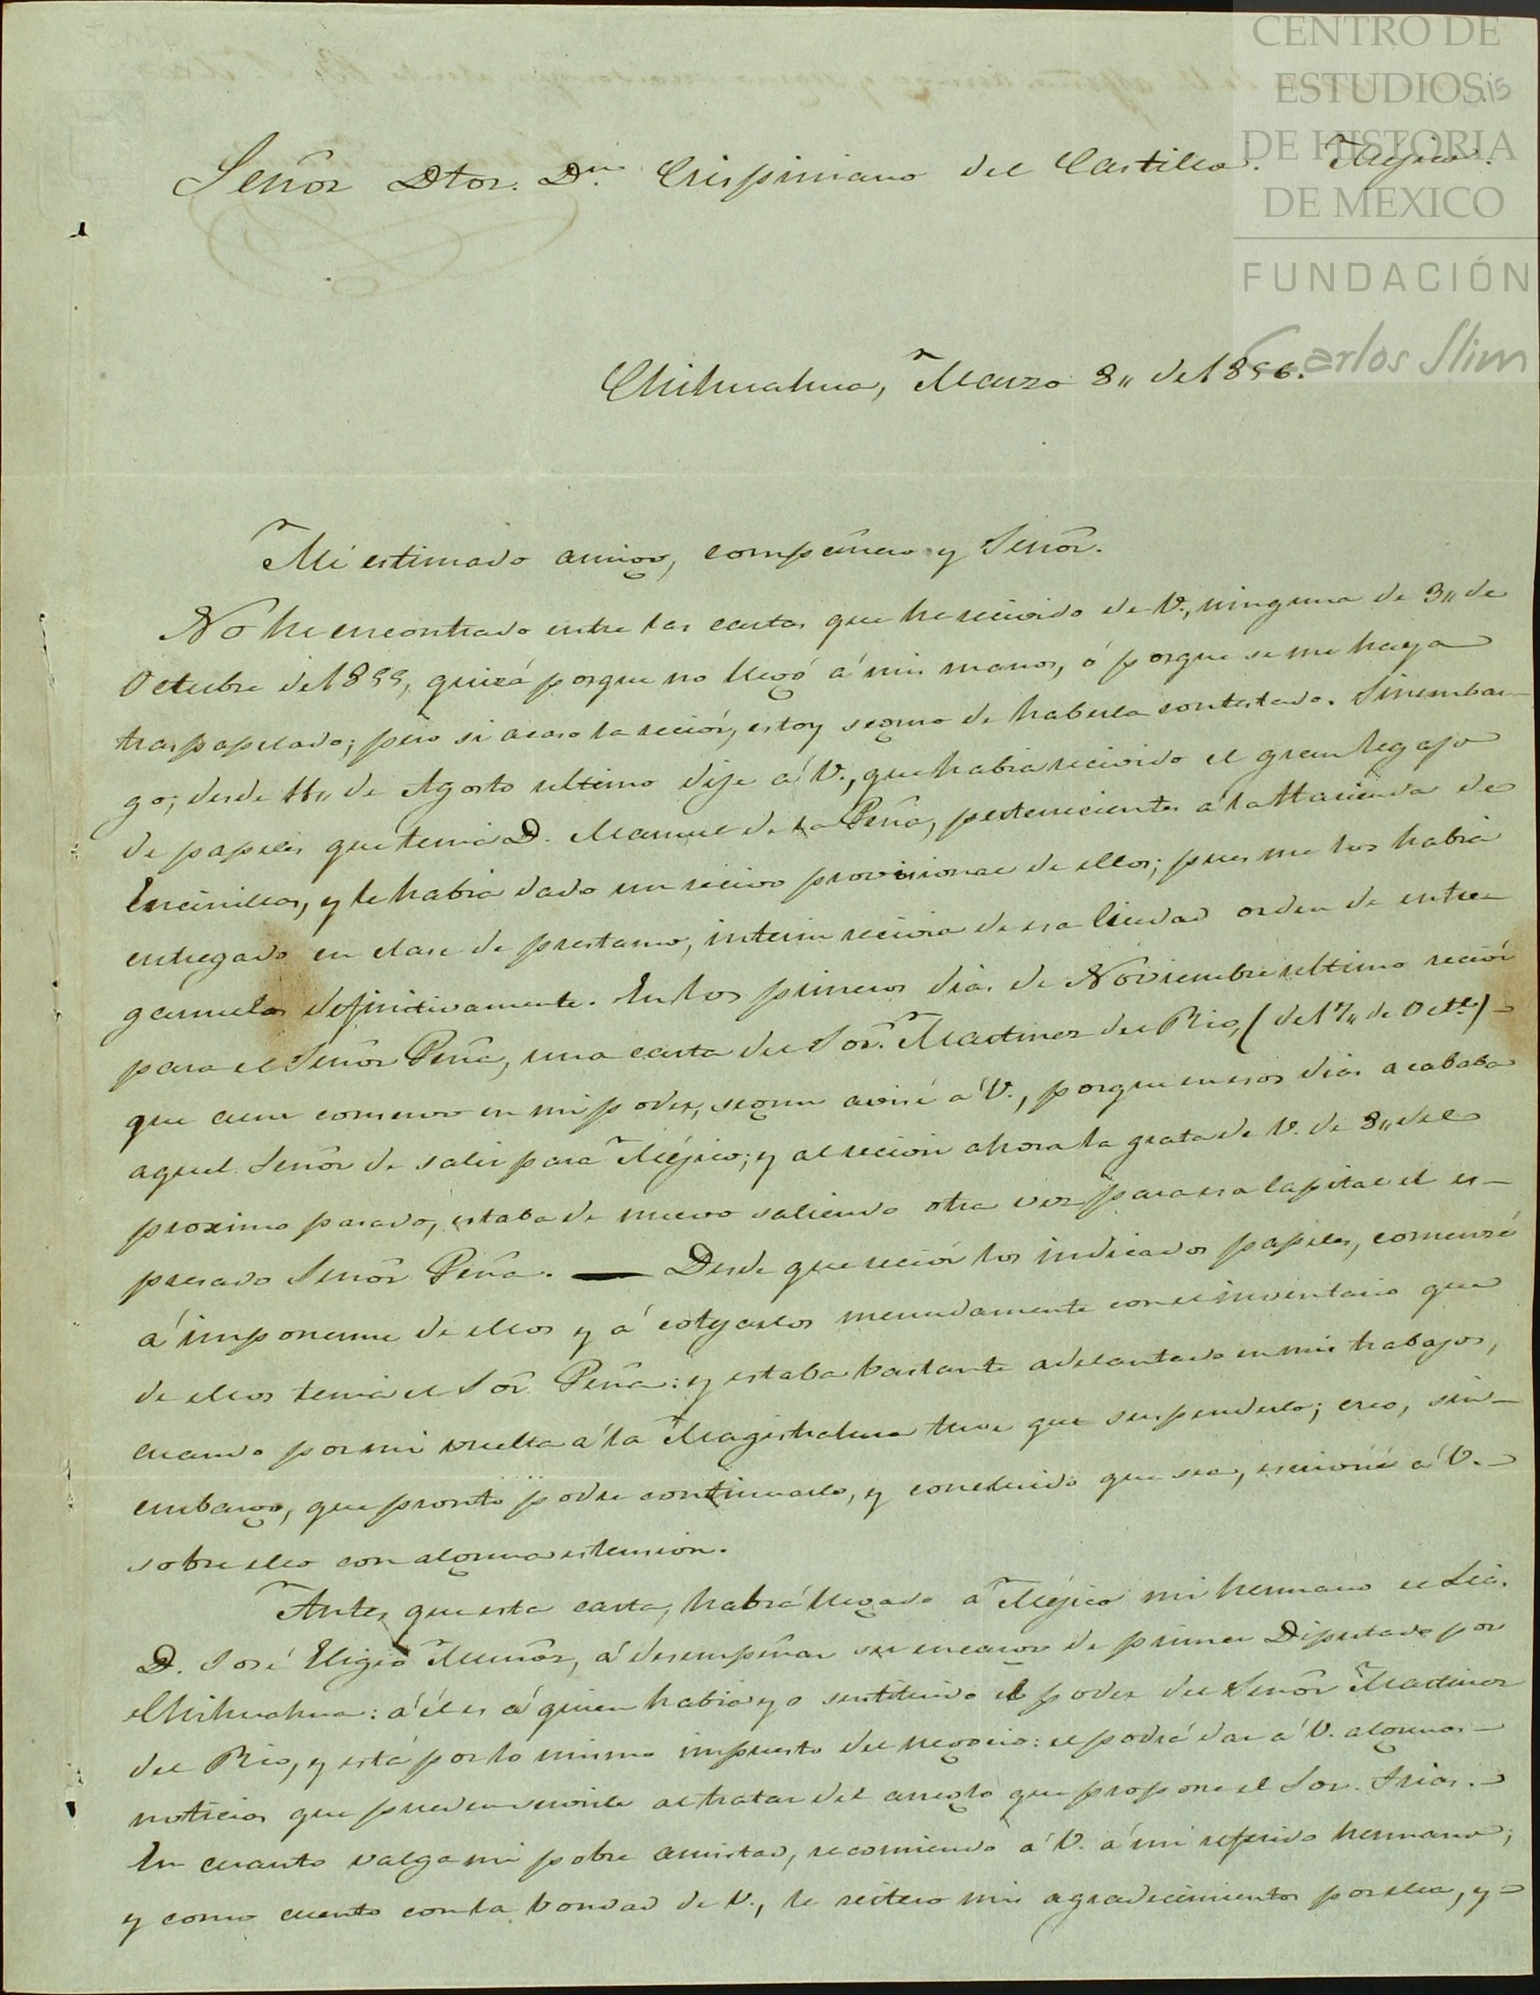 CENTRO DE
ESTUDIOS
DE HISTORIA
DE MEXICO
FUNDACIÓN
Carlos Slim
Señor Dtor. Dn. Crispiniano del Castillo. Mejico.
Chihuahua, Marzo 8,, de 1856.
Mi estimado amigo, compañero y Señor.
No he encontrado entre las cartas que he recivido de V., ninguna de 3,, de
Octubre de 1855, quizá porque no llegó á mis manos, ó porque se me haya
traspapelado; pero si acaso la recibí, estoy seguro de haberla contestado. Sinembar-
go; desde 11,, de Agosto ultimo dije á V., que habia recivido el gran legajo
de papeles que tenia D. Manuel de la Peña, pertenecientes a la Hacienda de
Encinillas, y le habia dado un recivo provisional de ellos; pues me los habia
entregado en clase de prestamo, interin recivia de esa Ciudad orden de entre-
garmelos definitivamente. En los primeros dias de Noviembre ultimo reciví
para el Señor Peña, una carta del Sor. Martinez del Rio, (del 17,, de Octe.)
que aun conservo en mi poder, segun avisé á V., porque en esos dias acababa
aquel Señor de salir para Méjico; y al recivir ahora la grata de V. de 8,, del
proximo pasado, estaba de nuevo saliendo otra vez para esa Capital el es-
presado Señor Peña. — Desde que reciví los indicados papeles, comenzé
á imponerme de ellos y á cotejarlos menudamente con el inventario que
de ellos tenia el Sor. Peña: y estaba bastante adelantado en mis trabajos,
cuando por mi vuelta á la Magistratura tuve que suspenderlo; creo, sin-
embargo, que pronto podre continuarlo, y concluido que sea, escriviré á V.
sobre ello con alguna estension.
Antes que esta carta, habrá llegado á Méjico mi hermano el Lic.
D. José Eligio Muñoz, á desempeñar su encargo de primer Diputado por
Chihuahua: á él es á quien habia yo sustituido el poder del Señor Martinez
del Rio, y está por lo mismo impuesto del negocio: el podrá dar á V. algunas
noticias que puedan servirle al tratar del arreglo que propone el Sor. Frias.
En cuanto valga mi pobre amistad, recomiendo á V. á mi referido hermano;
y como cuento con la bondad de V., le reitero mis agradecimientos por ella, y